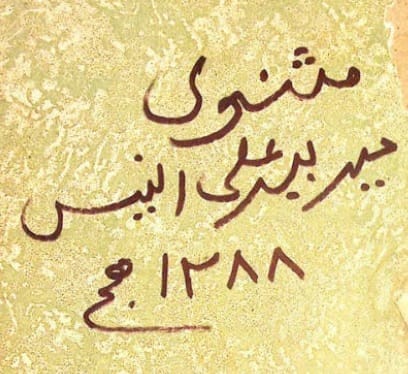 مثنوی
میر ببر علی انیس
۱۲۸۸ هج